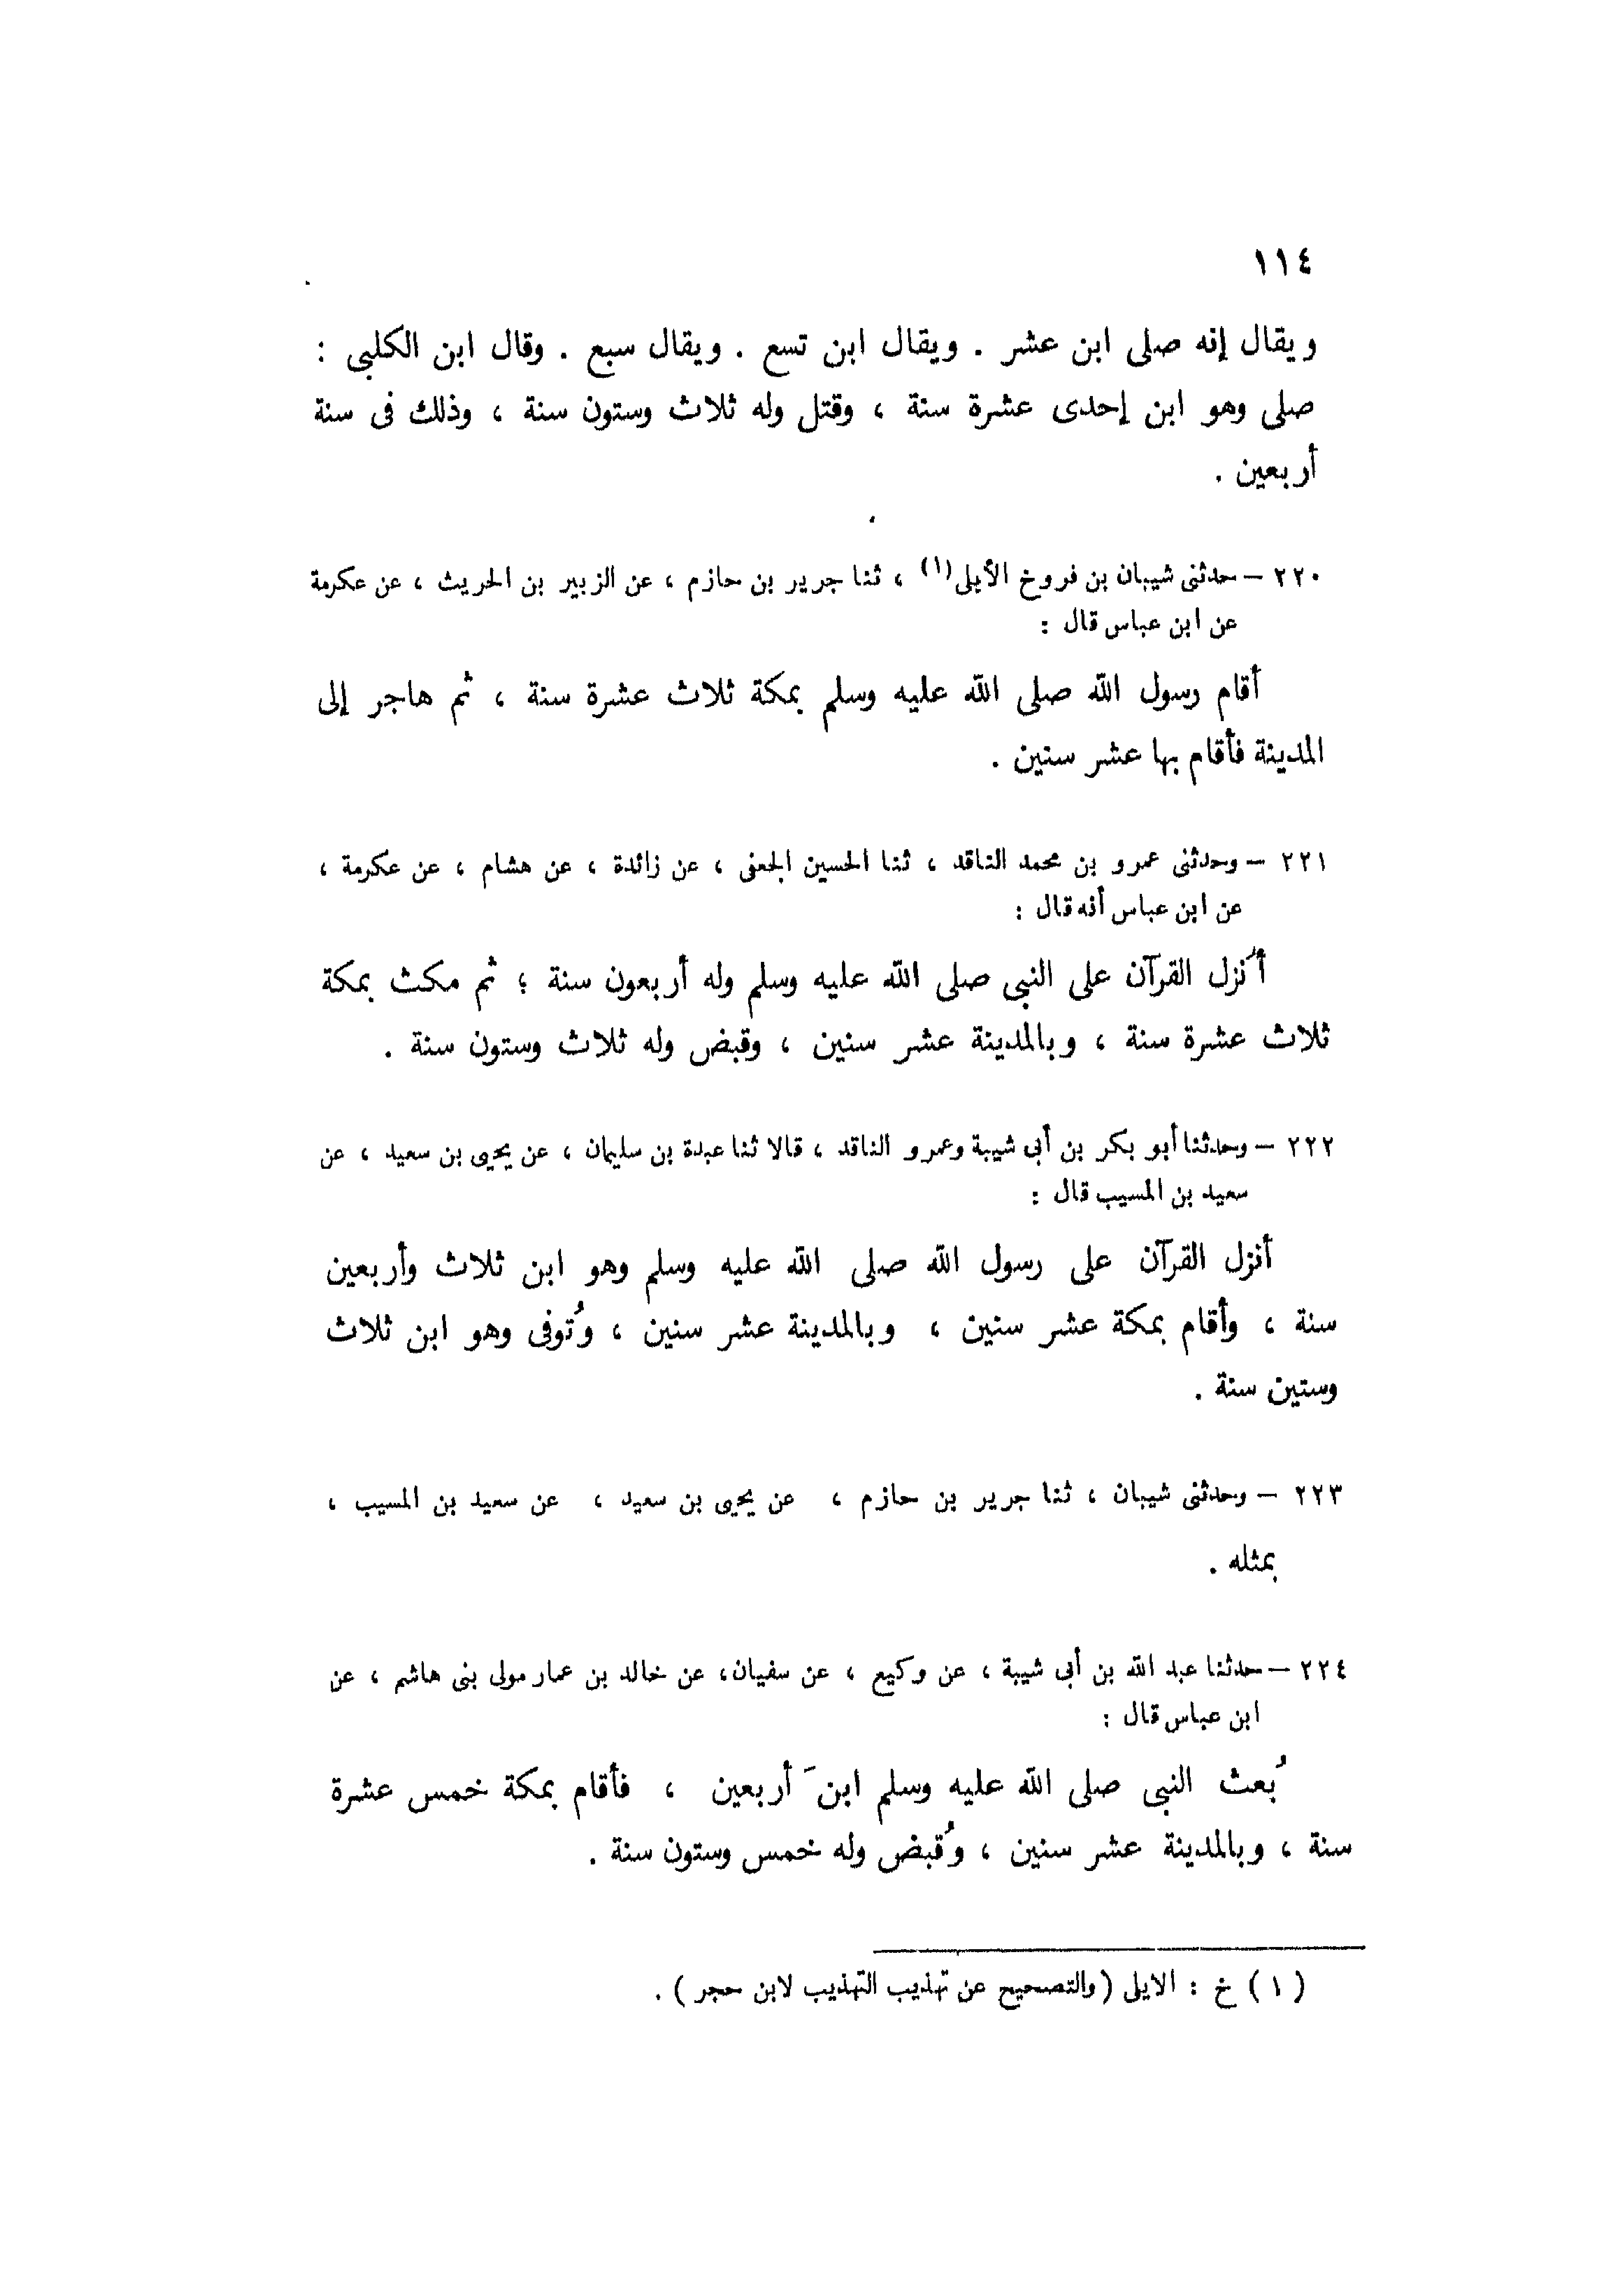 ١١٤
ويقال إنه صلى ابن عشر . ويقال ابن تسع . ويقال سبع . وقال ابن الكلبى :
صلى وهو ابن إحدى عشرة سنة ، وقتل وله ثلاث وستون سنة ، وذلك فى سنة
أربعين .
٢٢٠ – حدثنى شيبان بن فروخ الأيلى(١) ، ثنا جرير بن حازم ، عن الزبير بن الحريث ، عن عكرمة
عن ابن عباس قال :
أقام رسول الله صلى الله عليه وسلم بمكة ثلاث عشرة سنة ، ثم هاجر إلى
المدينة فأقام بها عشر سنين .
٢٢١ – وحدثنى عمرو بن محمد الناقد ، ثنا الحسين الجعفى ، عن زائدة ، عن هشام ، عن عكرمة ،
عن ابن عباس أنه قال :
أُنزل القرآن على النبى صلى الله عليه وسلم وله أربعون سنة ؛ ثم مكث بمكة
ثلاث عشرة سنة ، وبالمدينة عشر سنين ، وقبض وله ثلاث وستون سنة .
٢٢٢ – وحدثنا أبو بكر بن أبى شيبة وعمرو الناقد ، قالا ثنا عبدة بن سليمان ، عن يحيى بن سعيد ، عن
سعيد بن المسيب قال :
أنزل القرآن على رسول الله صلى الله عليه وسلم وهو ابن ثلاث وأربعين
سنة ، وأقام بمكة عشر سنين ، وبالمدينة عشر سنين ، وتُوفى وهو ابن ثلاث
وستين سنة .
٢٢٣ – وحدثنى شيبان ، ثنا جرير بن حازم ، عن يحيى بن سعيد ، عن سعيد بن المسيب ،
بمثله .
٢٢٤ – حدثنا عبد الله بن أبى شيبة ، عن وكيع ، عن سفيان، عن خالد بن عمار مولى بنى هاشم ، عن
ابن عباس قال :
بُعث النبى صلى الله عليه وسلم ابنَ أربعين ، فأقام بمكة خمس عشرة
سنة ، وبالمدينة عشر سنين ، وقُبض وله خمس وستون سنة .
(١) خ : الايلى (والتصحيح عن تهذيب التهذيب لابن حجر) .